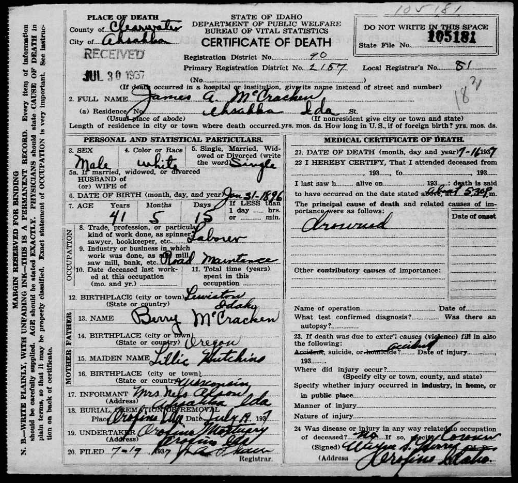 105181
PLACE OF DEATH
County of Clearwater
City of Ahsahka
RECEIVED
JUL 30 1937
STATE OF IDAHO
DEPARTMENT OF PUBLIC WELFARE
BUREAU OF VITAL STATISTICS
CERTIFICATE OF DEATH
DO NOT WRITE IN THIS SPACE
State File No. 105181
Registration District No. 90
Primary Registration District No. 2157
Local Registrar's No. 81
(No.
(If death occurred in a hospital or institution, give its name instead of street and number)
2. FULL NAME James A. McCracken
(a) Residence No. Ahsahka Ida St.
(Usual place of abode) (If nonresident give city or town and state)
Length of residence in city or town where death occurred. yrs. mos. da. How long in U. S., if of foreign birth? yrs. mos. ds.
PERSONAL AND STATISTICAL PARTICULARS.
3. SEX 4. Color or Race 5. Single, Married, Widowed or Divorced (write the word)
Male white Single
5a. If married, widowed, or divorced
HUSBAND of
(or) WIFE of
6. DATE OF BIRTH (month, day, and year) Jan-31-1896
7. AGE Years Months Days If LESS than 1 day hrs. or min.
41 5 15
8. Trade, profession, or particular kind of work done, as spinner, sawyer, bookkeeper, etc. Laborer
9. Industry or business in which work was done, as silk mill, saw mill, bank, etc. Road Maintence
10. Date deceased last worked at this occupation (mo. and yr.)
11. Total time (years) spent in this occupation
OCCUPATION
12. BIRTHPLACE (city or town) Lewiston
(State or country) Idaho
13. NAME Berry McCracken
14. BIRTHPLACE (city or town)
(State or country) Oregon
15. MAIDEN NAME Lillie Hutchins
16. BIRTHPLACE (city or town)
(State or country) Wisconsin
MOTHER FATHER
17. INFORMANT Mrs Nels Olson
(Address) Ahsahka Ida
18. BURIAL, CREMATION, OR REMOVAL
Place Orofino Date July 19 1937
19. UNDERTAKER Orofino Mortuary
(Address) Orofino Ida
20. FILED 7-19 1937
Registrar.
MEDICAL CERTIFICATE OF DEATH.
21. DATE OF DEATH (month, day, and year) 7-16-1937
22 I HEREBY CERTIFY, That I attended deceased from
193 , to 193
I last saw h alive on 193 death is said
to have occurred on the date stated above
The principal cause of death and related causes of importance were as follows: Date of onset
drowned
Other contributory causes of importance:
Name of operation Date of
What test confirmed diagnosis? Was there an autopsy?
23. If death was due to external causes (violence) fill in also the following: accident
Accident, suicide, or homicide? Date of injury 193
Where did injury occur?
(Specify city or town, county, and State)
Specify whether injury occurred in industry, in home, or in public place
Manner of injury
Nature of injury
24 Was disease or injury in any way related to occupation of deceased? No If so, specify Coroner
(Signed)
(Address) Orofino Idaho.
MARGIN RESERVED FOR BINDING
N. B.—WRITE PLAINLY, WITH UNFADING INK—THIS IS A PERMANENT RECORD. Every item of information should be carefully supplied. AGE should be stated EXACTLY. PHYSICIANS should state CAUSE OF DEATH in plain terms, so that it may be properly classified. Exact statement of OCCUPATION is very important. See instructions on back of certificate.